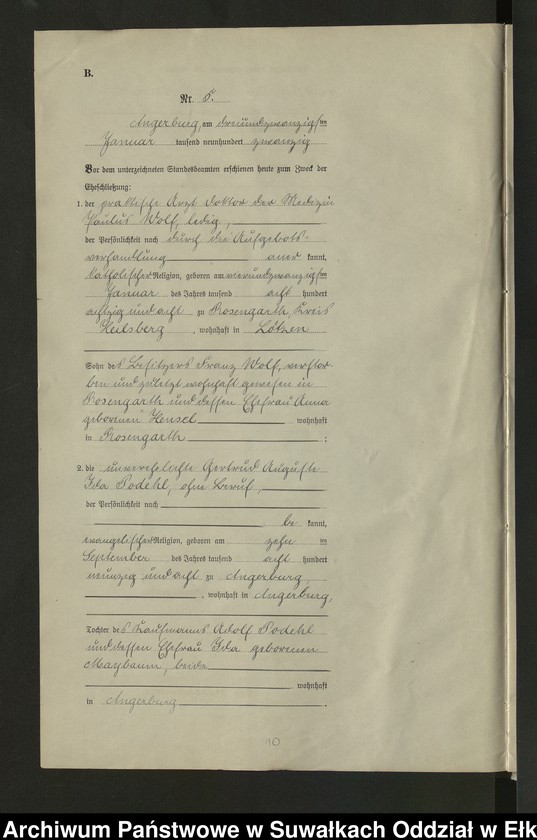 B.
Nr. 5.
Angerburg, am dreiundzwanzigsten
Januar tausend neunhundert zwanzig
Vor dem unterzeichneten Standesbeamten erschienen heute zum Zweck der
Eheschließung:
1. der praktische Arzt Doktor der Medizin
Paulus Wolf, ledig,
der Persönlichkeit nach durch die Aufgebots-
verhandlung aner kannt,
katholischer Religion, geboren am vierundzwanzigsten
Januar des Jahres tausend acht hundert
achtzig und acht zu Rosengarth, Kreis
Heilsberg, wohnhaft in Lötzen
Sohn des Besitzers Franz Wolf, verstor-
ben und zuletzt wohnhaft gewesen in
Rosengarth und dessen Ehefrau Anna
geborenen Hensel wohnhaft
in Rosengarth ;
2. die unverehelichte Gertrud Auguste
Ida Podehl, ohne Beruf,
der Persönlichkeit nach
be kannt,
evangelischer Religion, geboren am zehn ten
September des Jahres tausend acht hundert
neunzig und acht zu Angerburg
, wohnhaft in Angerburg,
Tochter des Kaufmanns Adolf Podehl
und dessen Ehefrau Ida geborenen
Maybaum, beide
wohnhaft
in Angerburg .
10
Archiwum Państwowe w Suwałkach Oddział w Ełku